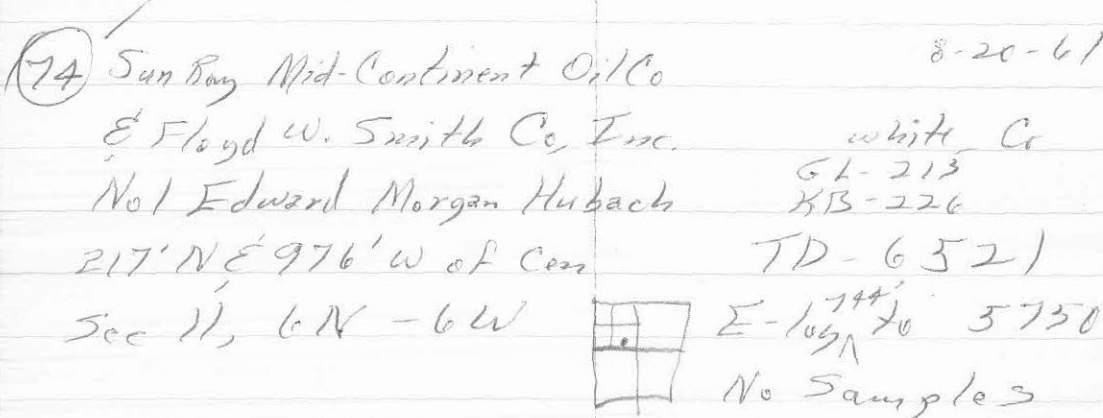 74 Sun Ray Mid-Continent Oil Co 8-20-61
& Floyd W. Smith Co, Inc. white Co
GL-213
No 1 Edward Morgan Hubach KB-226
217' N & 976' W of Cen TD-6521
Sec 11, 6N-6W E-log 744' to 5750
No Samples